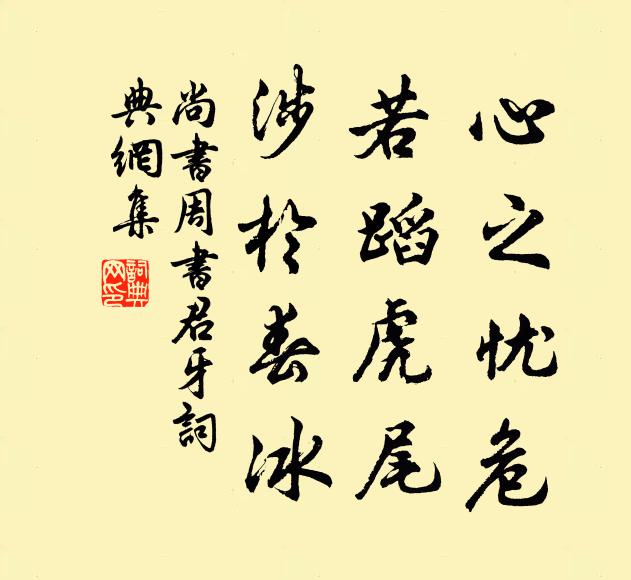 心之忧危
若蹈虎尾
涉於春冰
尚書周書君牙詞
典網集
詞典
网印